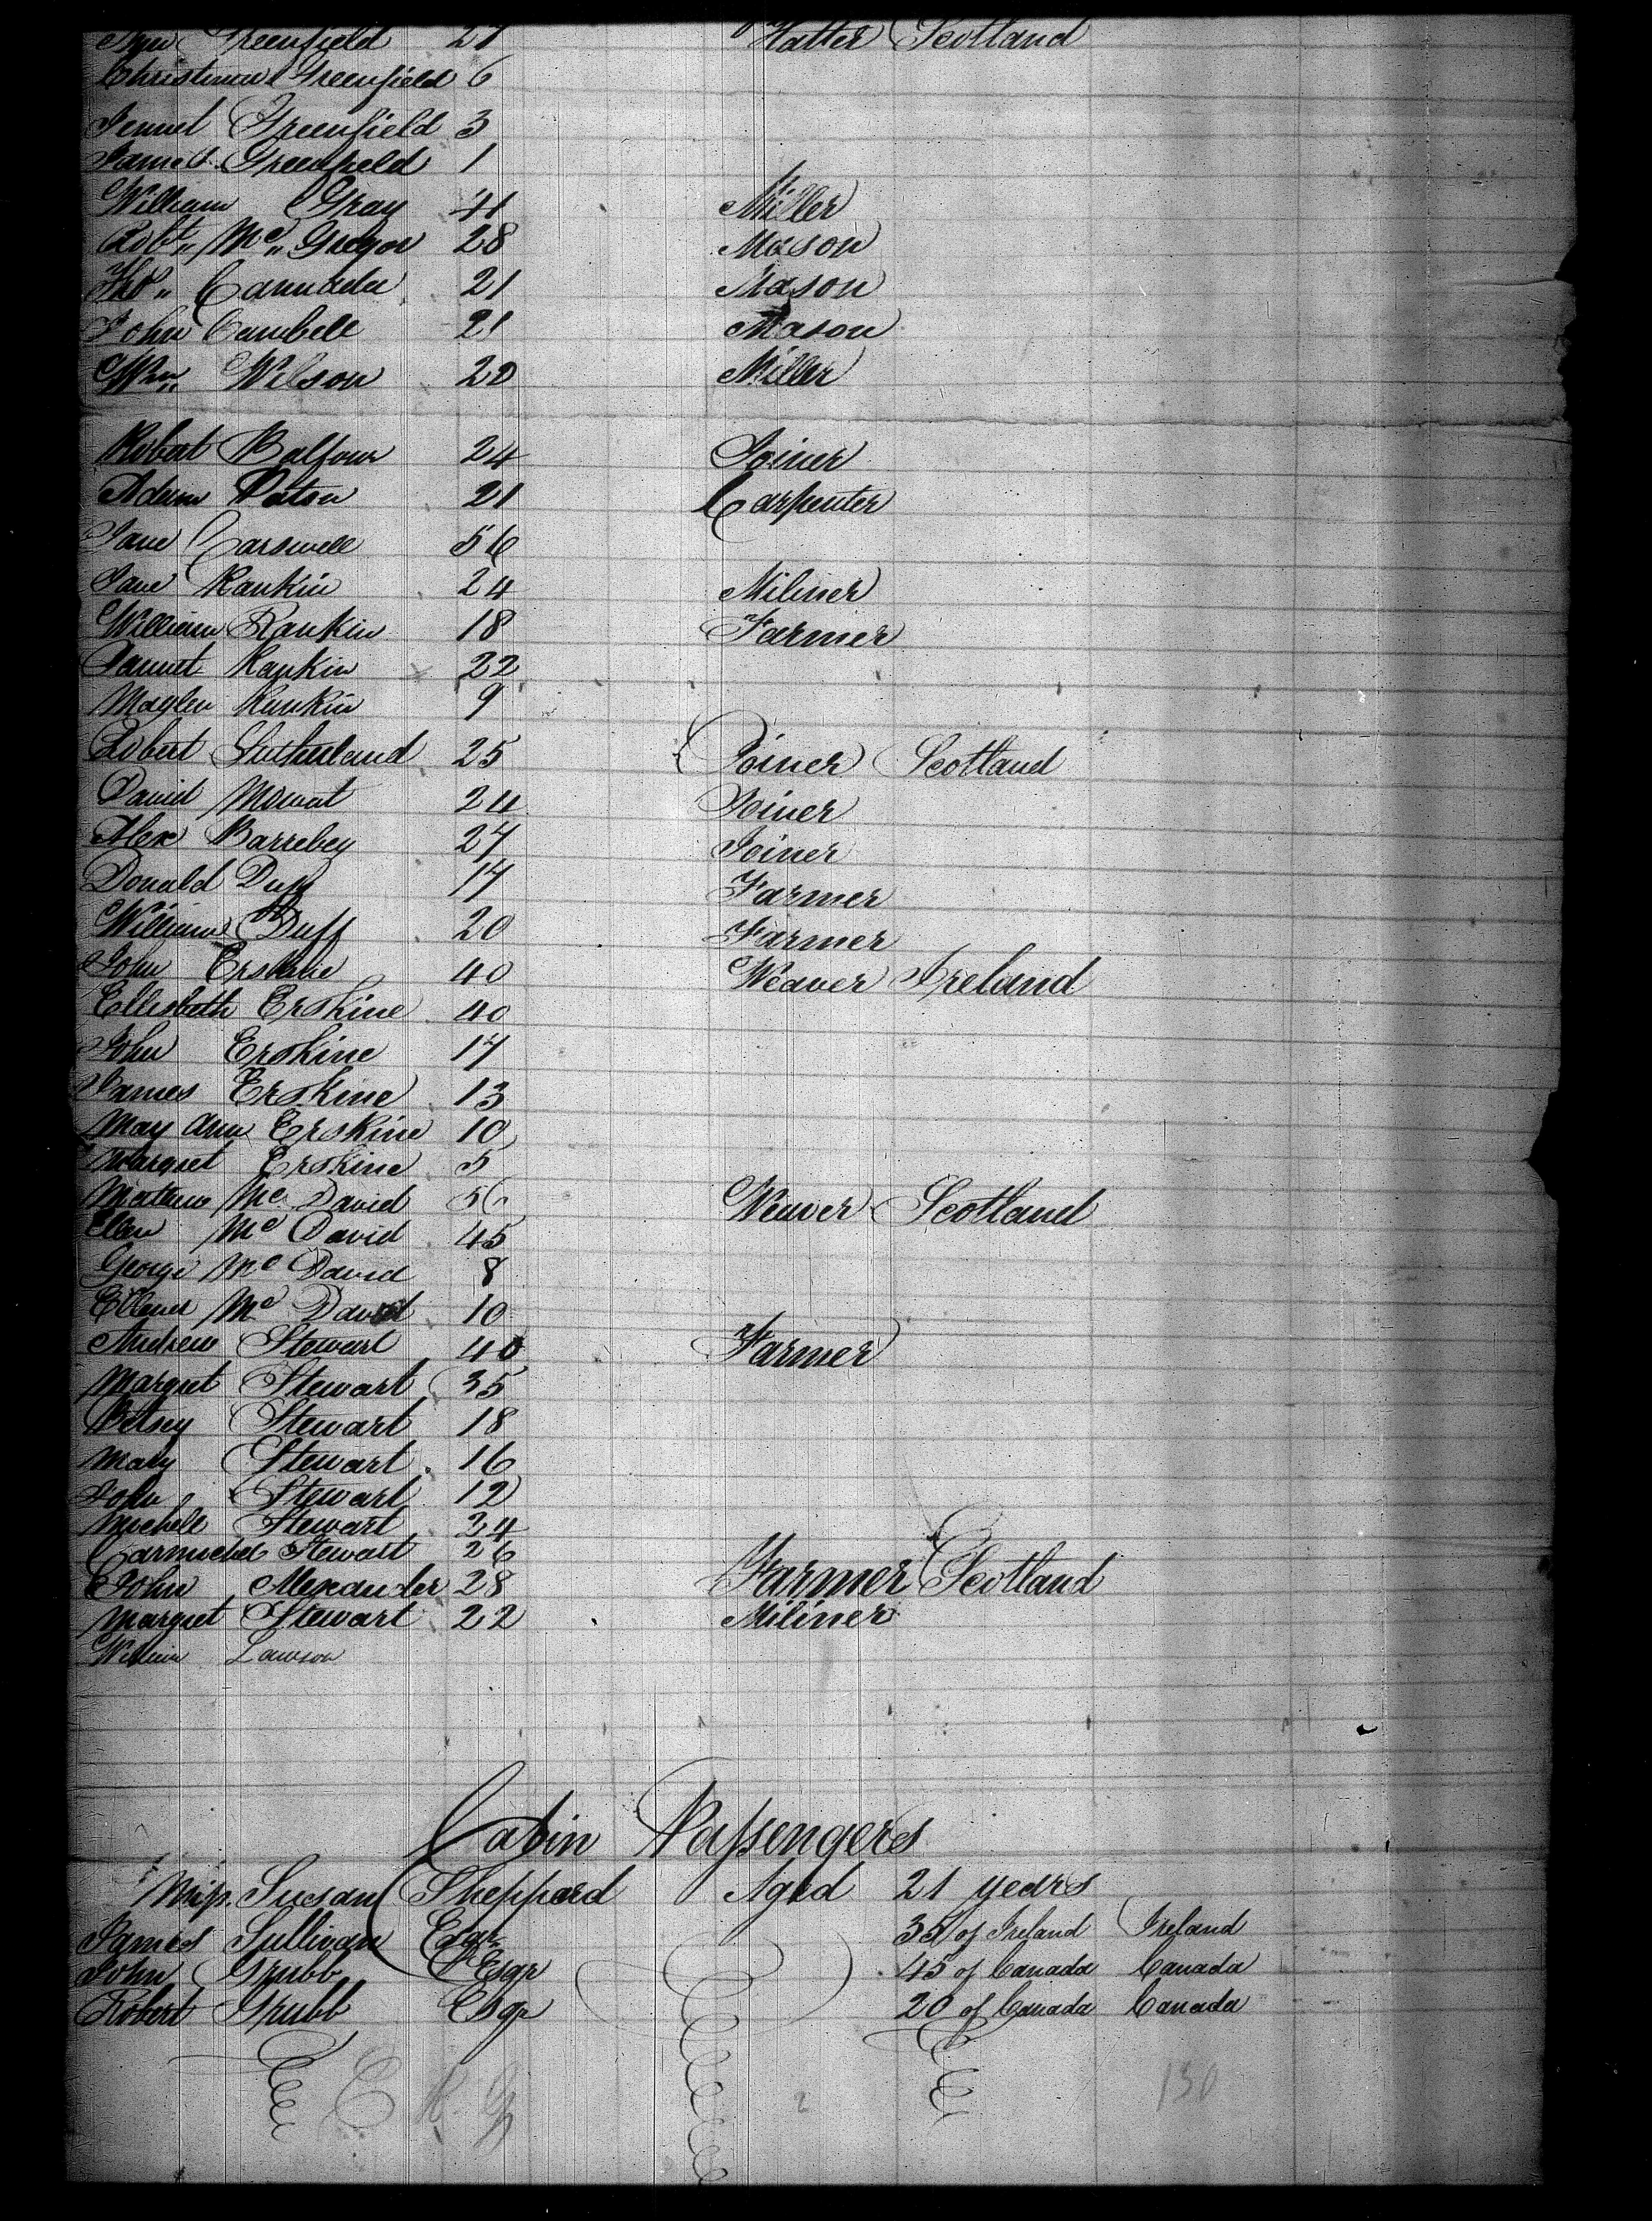 Greenfield 27 Hatter Scotland
Christinan Greenfield 6
Jennet Greenfield 3
James Greenfield 1
William Gray 41 Miller
Robt Mc Gregor 28 Mason
Tho 21 Mason
John Cambell 21 Mason
Wm Wilson 20 Miller
Robert Balfour 24 Joiner
Adam Paton 21 Carpenter
Jane Carswell 56
Jane Rankin 24 Miliner
William Rankin 18 Farmer
Jannet Rankin 22
Maglen Rankin 9
Robert Sutherland 25 Joiner Scotland
David Mowat 24 Joiner
Alex Barrebey 27 Joiner
Donald Duff 17 Farmer
William Duff 20 Farmer
John Erskine 40 Weaver Ireland
Ellisbeth Erskine 40
John Erskine 17
James Erskine 13
May Ann Erskine 10
Margret Erskine 5
Mathew Mc David 56 Weaver Scotland
Ellen Mc David 45
George Mc David 8
Mc David 10
Andrew Stewart 40 Farmer
Margret Stewart 35
Betsey Stewart 18
Mary Stewart 16
John Stewart 12
Michell Stewart 24
Carmichel Stewart 26
John Alexander 28 Farmer Scotland
Margret Stewart 22 Miliner
William Lawson
Cabin Passengers
Miss. Susan Sheppard Aged 21 years
James Sullivan Esqr 35 of Ireland Ireland
John Grubb Esqr 45 of Canada Canada
Robert Grubb Esqr 20 of Canada Canada
130